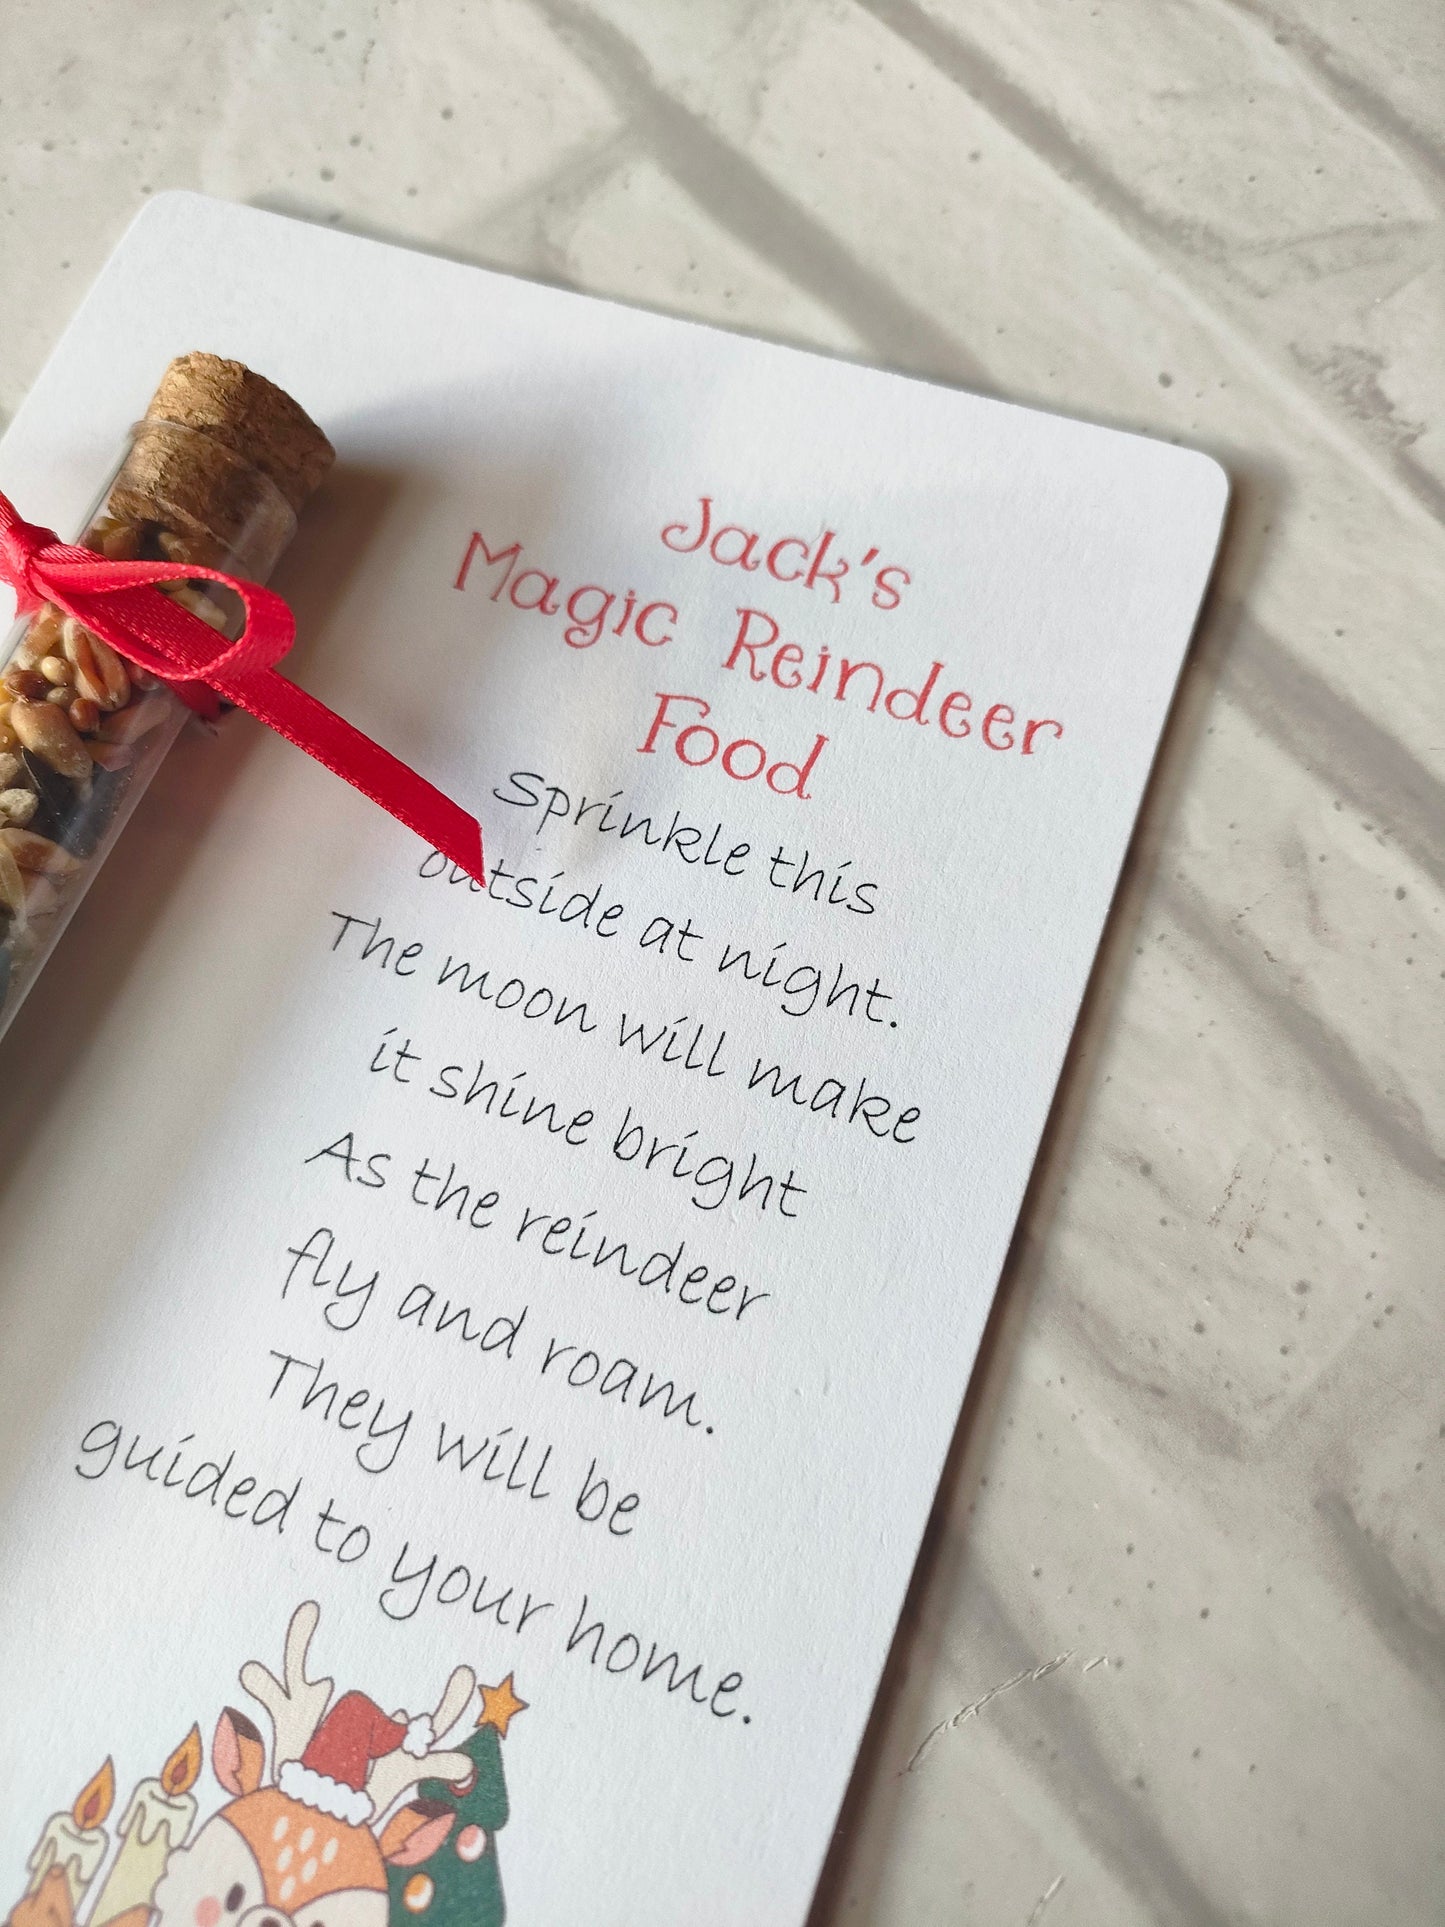 Jack's
Magic Reindeer
Food
Sprinkle this
outside at night.
The moon will make
it shine bright
As the reindeer
fly and roam.
They will be
guided to your home.